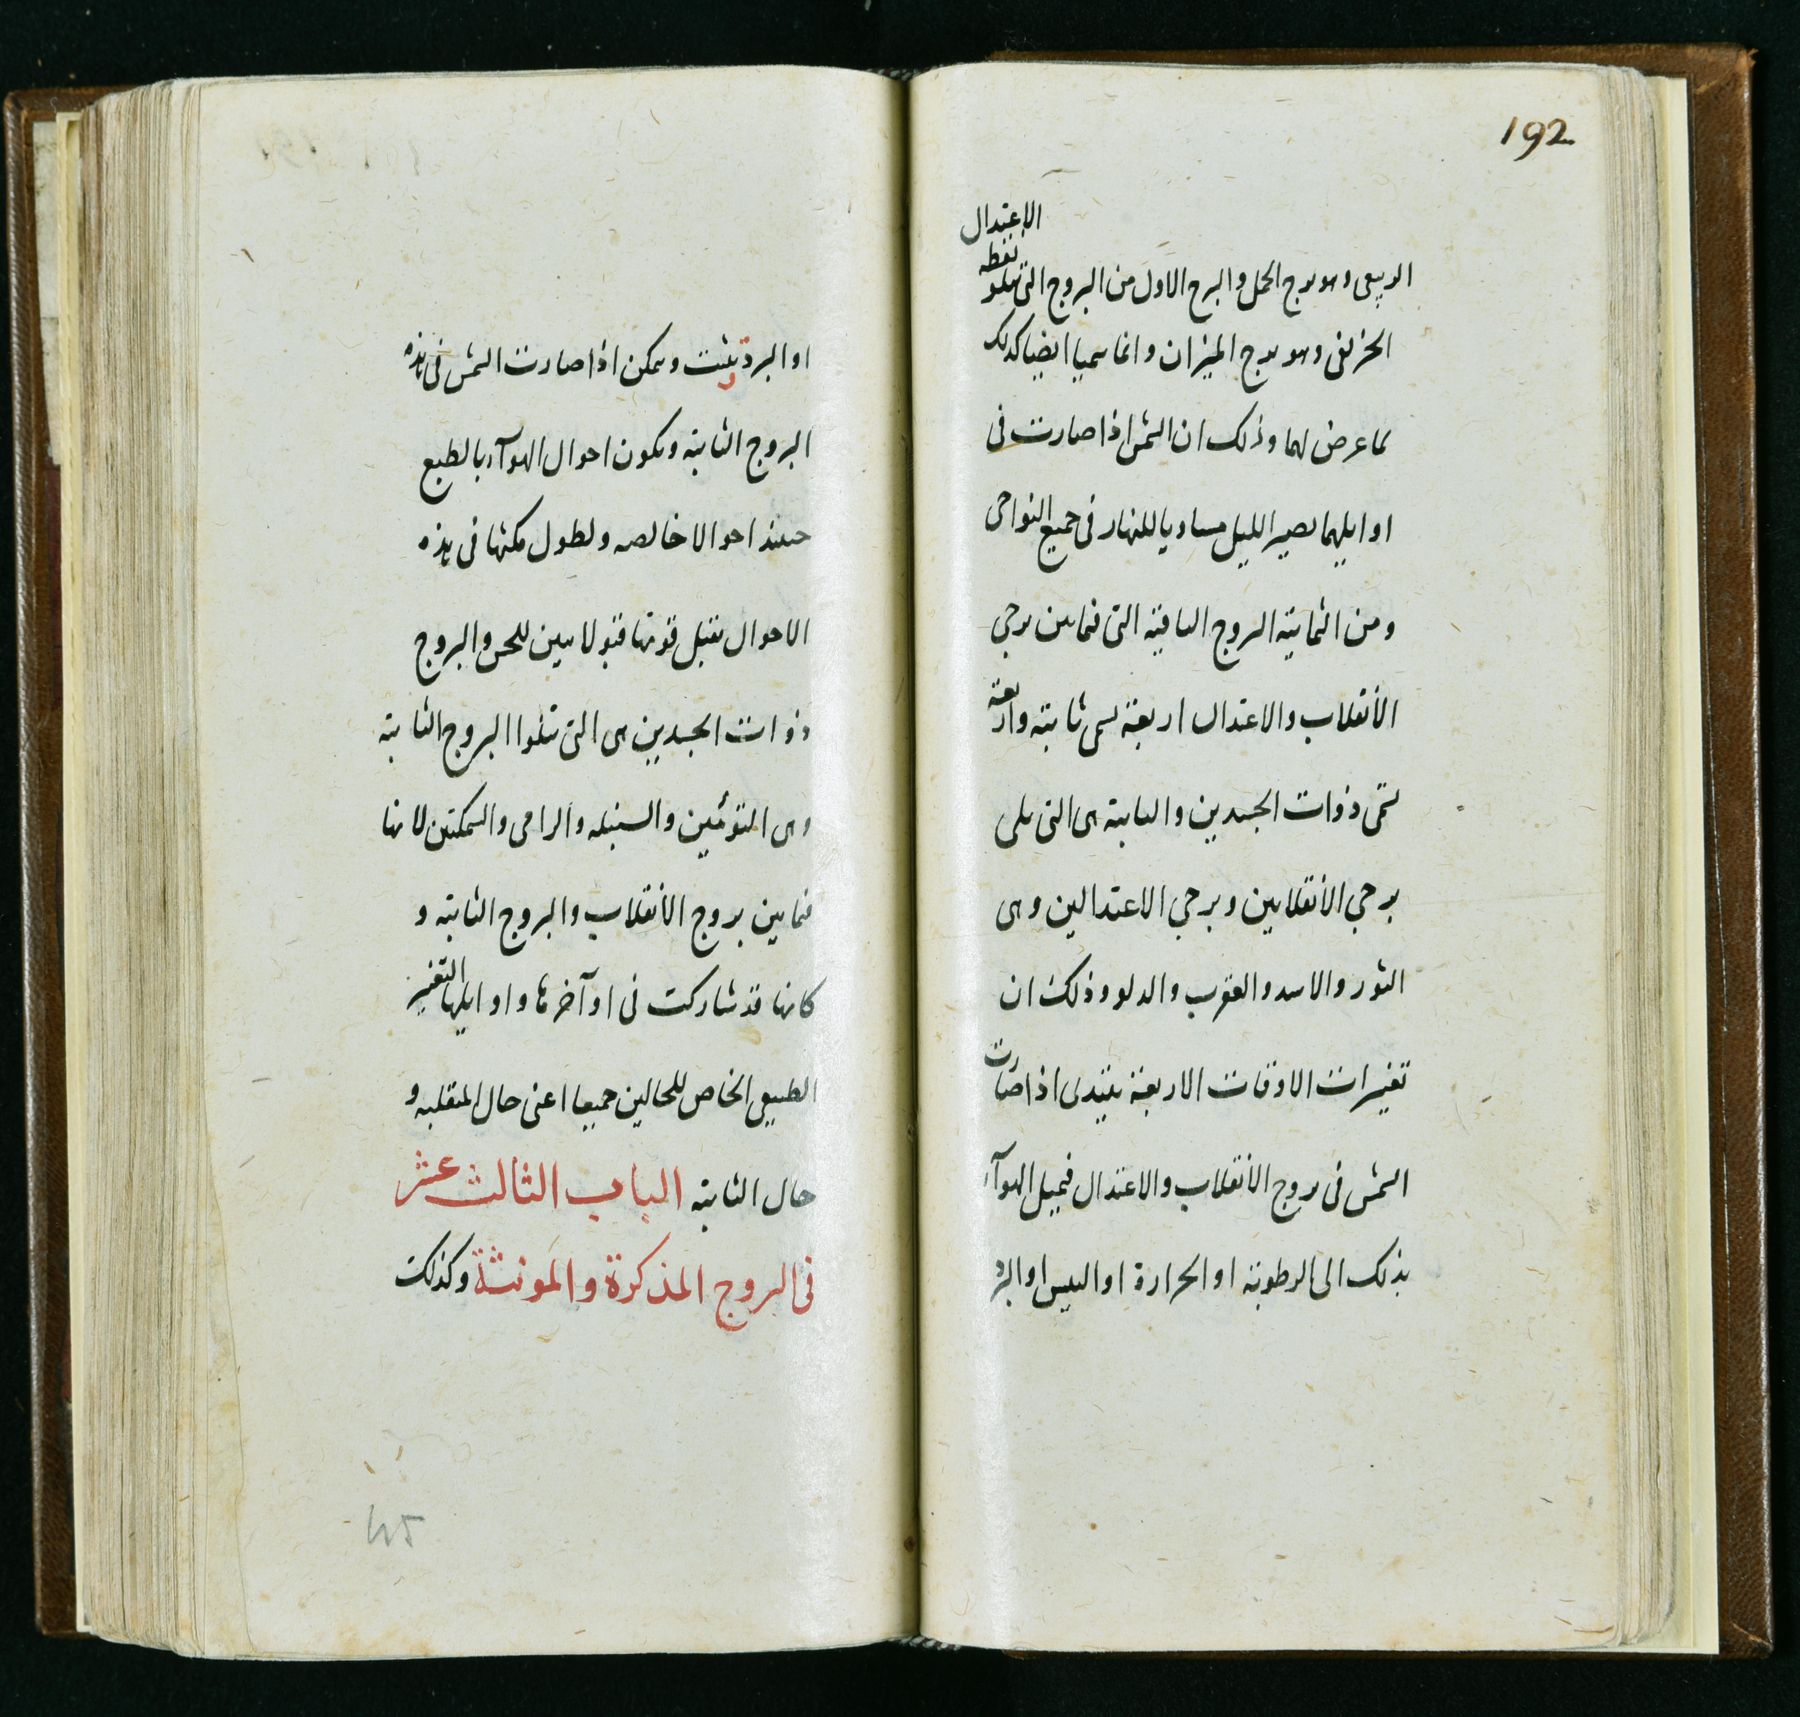 192
الاعتدال
نقطه
الربيعى وهو برج الحمل والبرج الاول من البروج التى تتلو
الخريفى وهو برج الميزان وانما سميا ايضا كذلك
لما عرض لهما وذلك ان الشمس اذا صارت فى
اوايلهما يصير الليل مساويا للنهار فى جميع النواحى
ومن الثمانية البروج الباقية التى فيما بين برجى
الأنقلاب والاعتدال اربعة تسمى ثابتة واربعة
تسمى ذوات الجسدين والثابتة هى التى تلى
برجى الأنقلابين وبرجى الاعتدالين وهى
الثور والاسد والعقرب والدلو وذلك ان
تغييرات الاوقات الاربعة تبتدى اذا صارت
الشمس فى بروج الأنقلاب والاعتدال فيميل الهوآء
بذلك الى الرطوبة او الحرارة او اليبس او البرد
او البرد ويثبت ويمكن اذا صارت الشمس فى هذه
البروج الثابتة ويكون احوال الهوآء بالطبع
حينئذ احوالا خالصه ولطول مكثها فى هذه
الاحوال نقبل قوتها قبولا يبين للحس والبروج
ذوات الجسدين هى التى تتلوا البروج الثابتة
وهى التوأمين والسنبله والرامى والسمكتين لانها
فيما بين بروج الأنقلاب والبروج الثابتة و
كانها قد شاركت فى اوآخرها واوايلها التغيير
الطبيعى الخاص للحالين جميعا اعنى حال المنقلبه و
حال الثابتة الباب الثالث عشر
فى البروج المذكرة والمونثة وكذلك